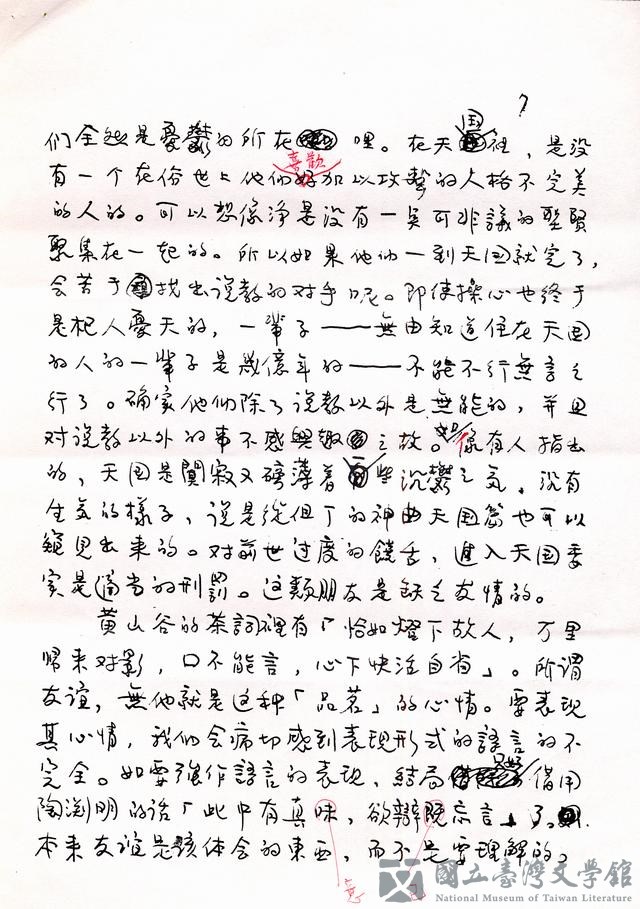 7
们全然是憂鬱的所在哩。在天国裡，是没
喜歡
有一个在俗世上他們好加以攻擊的人格不完美
的人的。可以想像淨是没有一点可非議的聖賢
聚集在一起的。所以如果他们一到天国就完了，
会苦于找出说教的对手呢。即使操心也终于
是杞人憂天的，一輩子——無由知道住在天国
的人的一輩子是幾億年的——不能不行無言之
行了。确实他們除了说教以外是無能的，并且
对说教以外的事不感興趣之故。像有人指出
的，天国是闃寂又磅薄着些沉鬱之気，没有
生気的樣子，说是從但丁的神曲天国篇也可以
窺見出来的。对前世过度的饒舌，進入天国委
实是適当的刑罰。这類朋友是缺乏友情的。
黄山谷的茶詞裡有「恰如燈下故人，万里
歸来对影，口不能言，心下快活自省」。所謂
友誼，無他就是这种「品茗」的心情。要表現
其心情，我們会痛切感到表現形式的語言的不
完全。如要強作語言的表現，結局只好借用
陶渊明的话「此中有真味，欲辯既忘言」了。
本来友誼是該体会的東西，而不是要理解的。
意 已
國立臺灣文學館
National Museum of Taiwan Literature